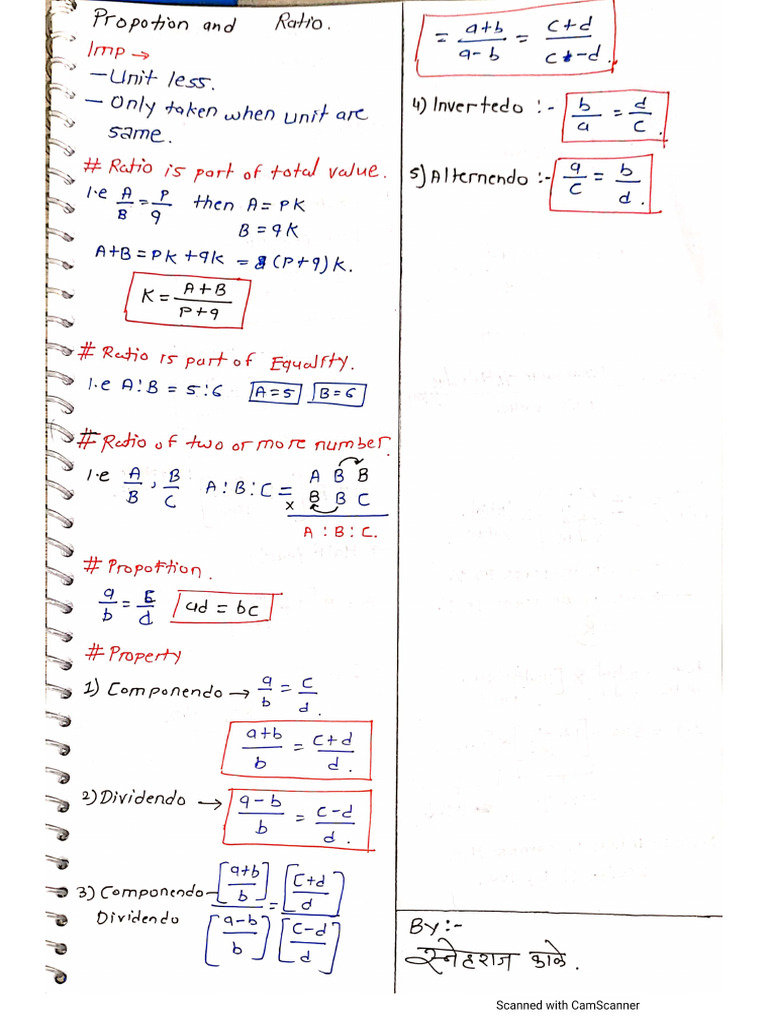 Propotion and Ratio.
Imp →
- Unit less.
- Only taken when unit are
same.
# Ratio is part of total value.
i.e A/B = P/q then A = PK
B = qK
A+B = PK + qK = (P+q)K.
K = A+B / P+q
# Ratio is part of Equality.
i.e A:B = 5:6 A=5 B=6
# Ratio of two or more number.
i.e A/B, B/C A:B:C = A B B
x B B C
A : B : C.
# Propotion.
a/b = c/d ad = bc
# Property
1) Componendo → a/b = c/d.
a+b/b = c+d/d.
2) Dividendo → a-b/b = c-d/d.
3) Componendo - [a+b/b] / [a-b/b] = [c+d/d] / [c-d/d]
Dividendo
= a+b/a-b = c+d/c-d.
4) Invertedo :- b/a = d/c.
5) Alternendo :- a/c = b/d.
By :-
स्नेहराज काळे.
Scanned with CamScanner